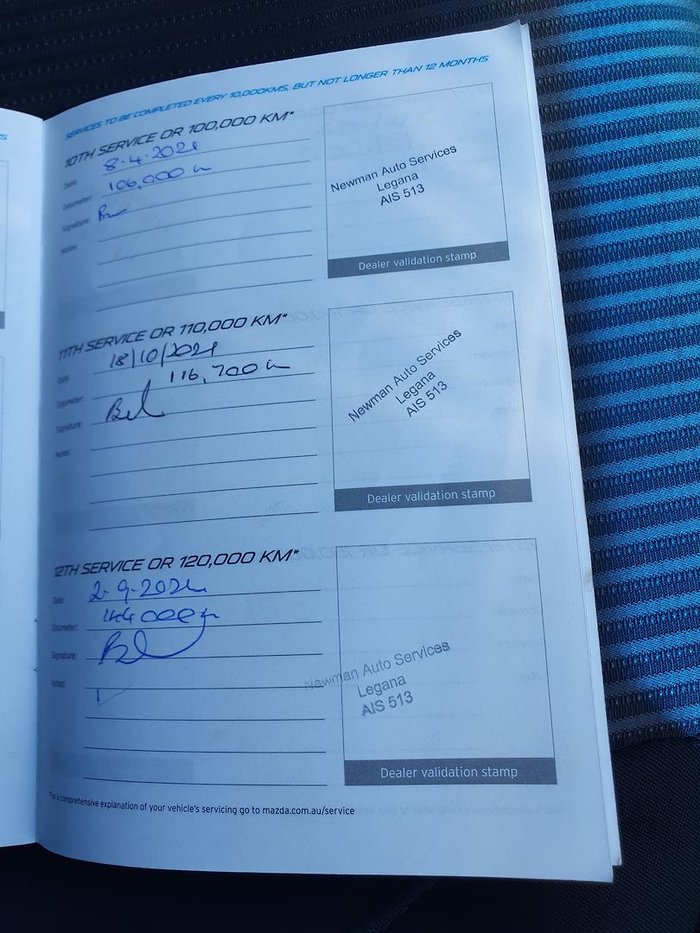 SERVICES TO BE COMPLETED EVERY 10,000KMS, BUT NOT LONGER THAN 12 MONTHS
10TH SERVICE OR 100,000 KM*
Date: 8.4.2021
Odometer: 106,000 km
Signature:
Notes:
Newman Auto Services
Legana
AIS 513
Dealer validation stamp
11TH SERVICE OR 110,000 KM*
Date: 18/10/2021
Odometer: 116,700 km
Signature:
Notes:
Newman Auto Services
Legana
AIS 513
Dealer validation stamp
12TH SERVICE OR 120,000 KM*
Date: 2-9-202
Odometer: 144000 km
Signature:
Notes:
Newman Auto Services
Legana
AIS 513
Dealer validation stamp
a comprehensive explanation of your vehicle's servicing go to mazda.com.au/service